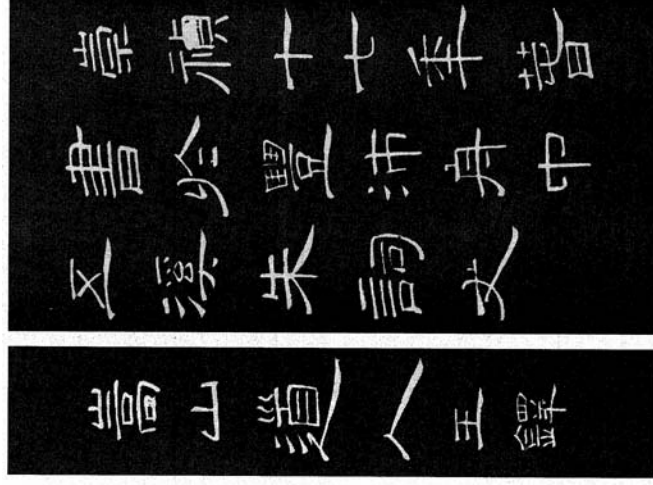 崇禎十七年昔
書於豐沛舟中
五朱詞丈
嵩山道人王鐸